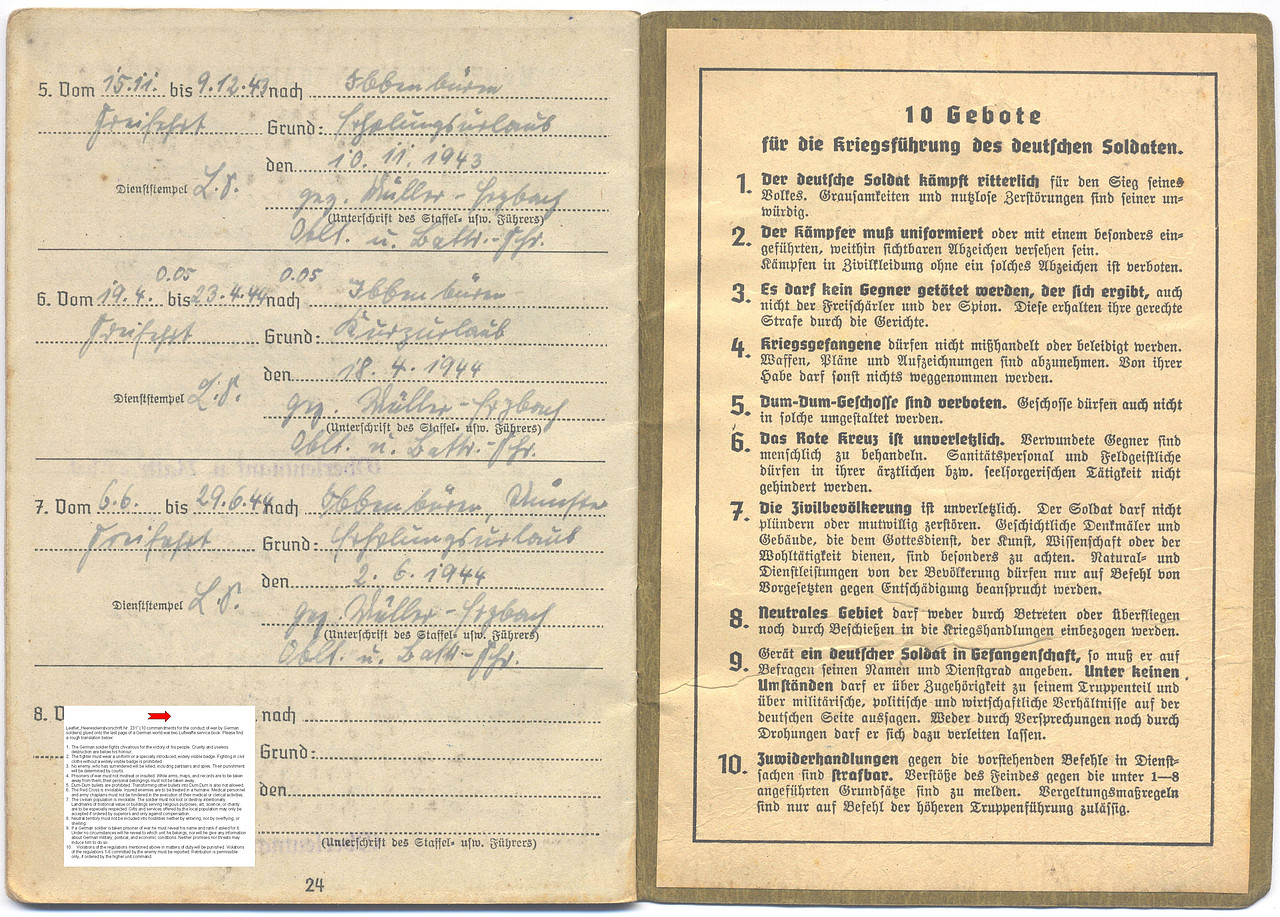 5. Vom 15.11. bis 9.12.43 nach Ibbenbüren
Freifahrt Grund: Erholungsurlaub
den 10. 11. 1943
Dienststempel L.S. gez. Müller-Erzbach
(Unterschrift des Staffel- usw. Führers)
Oblt. u. Battr.-Fhr.
0.05 0.05
6. Vom 19.4. bis 23.4.44 nach Ibbenbüren
Freifahrt Grund: Kurzurlaub
den 18. 4. 1944
Dienststempel L.S. gez. Müller-Erzbach
(Unterschrift des Staffel- usw. Führers)
Oblt. u. Battr.-Fhr.
7. Vom 6.6. bis 29.6.44 nach Ibbenbüren, Münster
Freifahrt Grund: Erholungsurlaub
den 2. 6. 1944
Dienststempel L.S. gez. Müller-Erzbach
(Unterschrift des Staffel- usw. Führers)
Oblt. u. Battr.-Fhr.
8. nach
Grund:
den
(Unterschrift des Staffel- usw. Führers)
24
Leaflet „Heeresdienstvorschrift Nr. 231“ (10 commentments for the conduct of war by German
soldiers) glued onto the last page of a German world war two Luftwaffe service book. Please find
a rough translation below:
1. The German soldier fights chivalrous for the victory of his people. Cruelty and useless
destruction are below his honour.
2. The fighter must wear a uniform or a specially introduced, widely visible badge. Fighting in civil
cloths without a widely visible badge is prohibited.
3. No enemy, who has surrendered will be killed, including partisans and spies. Their punishment
will be determined by courts.
4. Prisoners of war must not mistreat or insulted. While arms, maps, and records are to be taken
away from them, their personal belongings must not be taken away.
5. Dum-Dum bullets are prohibited. Transforming other bullets into Dum Dum is also not allowed.
6. The Red Cross is inviolable. Injured enemies are to be treated in a humane. Medical personnel
and army chaplains must not be hindered in the execution of their medical or clerical activities.
7. The civilian population is inviolable. The soldier must not loot or destroy intentionally.
Landmarks of historical value or buildings serving religious purposes, art, science, or charity
are to be especially respected. Gifts and services offered by the local population may only be
accepted if ordered by superiors and only against compensation.
8. Neutral territory must not be included into hostilities neither by entering, nor by overflying, or
shelling.
9. If a German soldier is taken prisoner of war he must reveal his name and rank if asked for it.
Under no circumstances will he reveal to which unit he belongs, nor will he give any information
about German military, political, and economic conditions. Neither promises nor threats may
induce him to do so.
10. Violations of the regulations mentioned above in matters of duty will be punished. Violations
of the regulations 1-8 committed by the enemy must be reported. Retribution is permissible
only, if ordered by the higher unit command.
10 Gebote
für die Kriegsführung des deutschen Soldaten.
1. Der deutsche Soldat kämpft ritterlich für den Sieg seines
Volkes. Grausamkeiten und nutzlose Zerstörungen sind seiner un-
würdig.
2. Der Kämpfer muß uniformiert oder mit einem besonders ein-
geführten, weithin sichtbaren Abzeichen versehen sein.
Kämpfen in Zivilkleidung ohne ein solches Abzeichen ist verboten.
3. Es darf kein Gegner getötet werden, der sich ergibt, auch
nicht der Freischärler und der Spion. Diese erhalten ihre gerechte
Strafe durch die Gerichte.
4. Kriegsgefangene dürfen nicht mißhandelt oder beleidigt werden.
Waffen, Pläne und Aufzeichnungen sind abzunehmen. Von ihrer
Habe darf sonst nichts weggenommen werden.
5. Dum-Dum-Geschosse sind verboten. Geschosse dürfen auch nicht
in solche umgestaltet werden.
6. Das Rote Kreuz ist unverletzlich. Verwundete Gegner sind
menschlich zu behandeln. Sanitätspersonal und Feldgeistliche
dürfen in ihrer ärztlichen bzw. seelsorgerischen Tätigkeit nicht
gehindert werden.
7. Die Zivilbevölkerung ist unverletzlich. Der Soldat darf nicht
plündern oder mutwillig zerstören. Geschichtliche Denkmäler und
Gebäude, die dem Gottesdienst, der Kunst, Wissenschaft oder der
Wohltätigkeit dienen, sind besonders zu achten. Natural- und
Dienstleistungen von der Bevölkerung dürfen nur auf Befehl von
Vorgesetzten gegen Entschädigung beansprucht werden.
8. Neutrales Gebiet darf weder durch Betreten oder Überfliegen
noch durch Beschießen in die Kriegshandlungen einbezogen werden.
9. Gerät ein deutscher Soldat in Gefangenschaft, so muß er auf
Befragen seinen Namen und Dienstgrad angeben. Unter keinen
Umständen darf er über Zugehörigkeit zu seinem Truppenteil und
über militärische, politische und wirtschaftliche Verhältnisse auf der
deutschen Seite aussagen. Weder durch Versprechungen noch durch
Drohungen darf er sich dazu verleiten lassen.
10. Zuwiderhandlungen gegen die vorstehenden Befehle in Dienst-
sachen sind strafbar. Verstöße des Feindes gegen die unter 1—8
angeführten Grundsätze sind zu melden. Vergeltungsmaßregeln
sind nur auf Befehl der höheren Truppenführung zulässig.